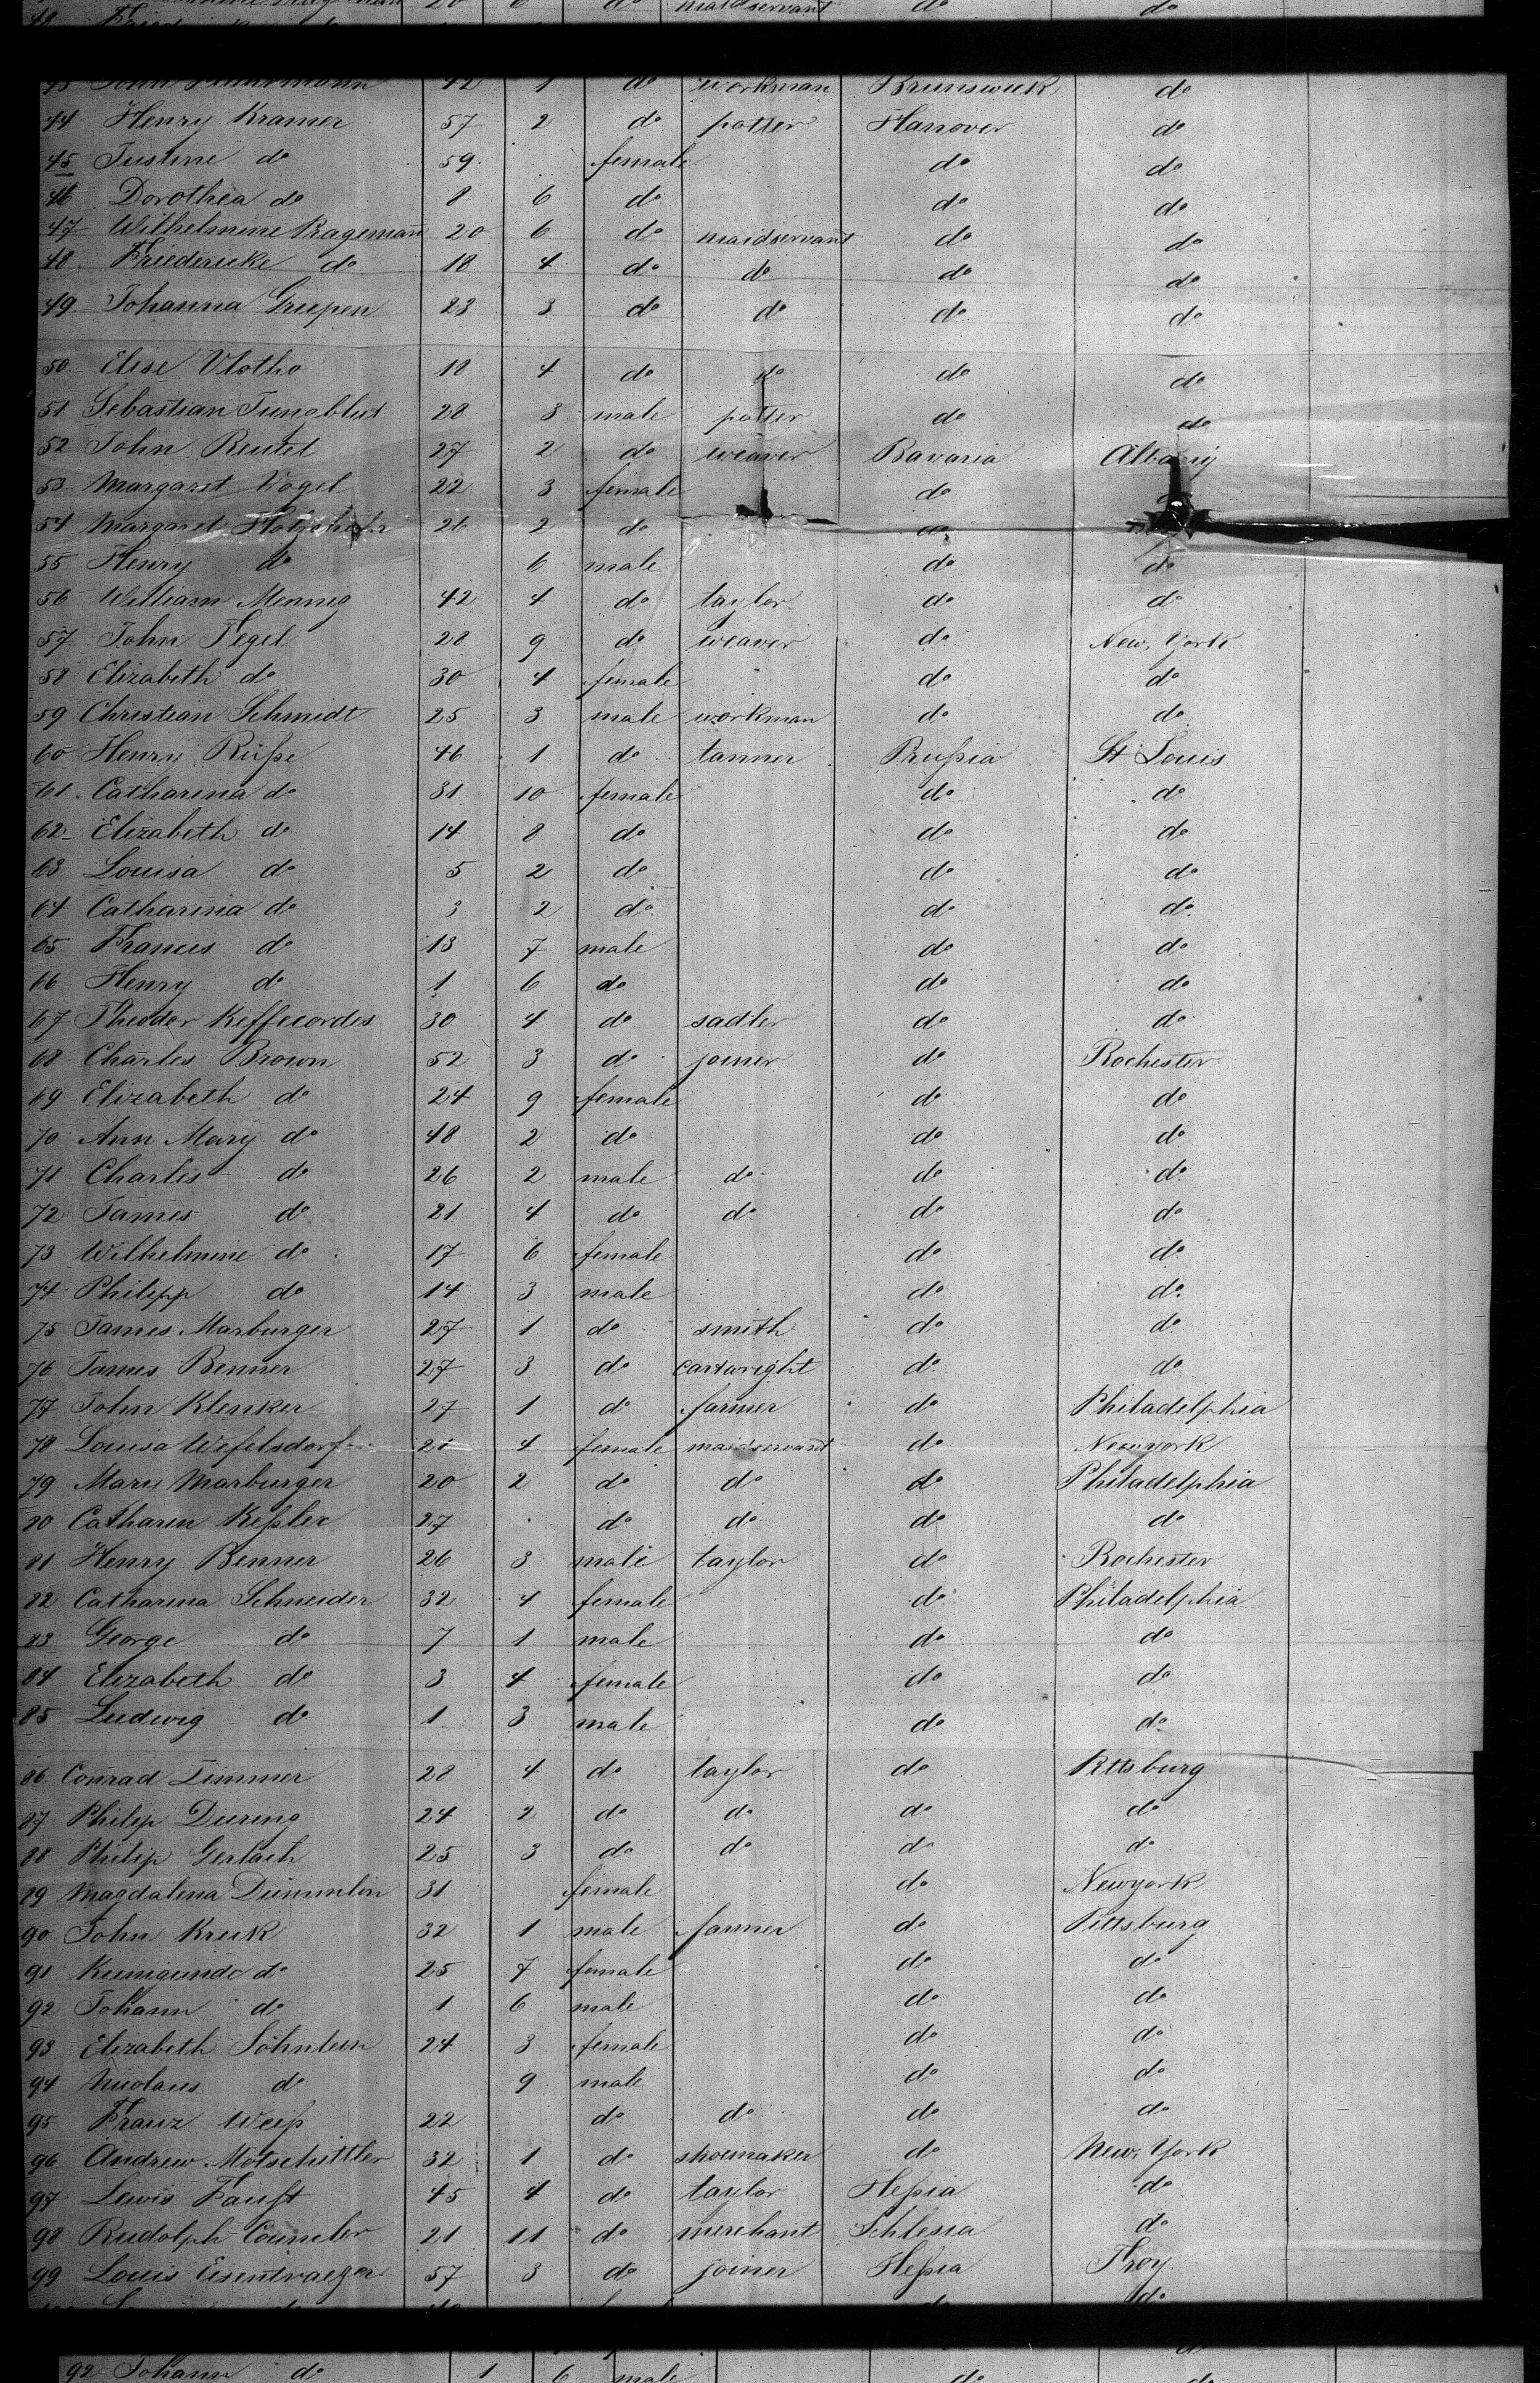 maidservant do do
43 John 42 1 do workman Brunswick do
44 Henry Kramer 57 2 do potter Hanover do
45 Justine do 59 female do do
46 Dorothea do 8 6 do do do
47 Wilhelmine Pragemann 20 6 do maidservant do do
48 Friedericke do 18 4 do do do do
49 Johanna Greepen 23 3 do do do do
50 Elise Vlotho 18 4 do do do do
51 Sebastian Jungblut 28 3 male potter do do
52 John Reutel 27 2 do weaver Bavaria Albany
53 Margaret Vogel 22 3 female do
54 Margaret 2 do do
55 Henry do 6 male do do
56 William Mennig 42 4 do taylor do do
57 John Fegel 28 9 do weaver do New York
58 Elizabeth do 30 4 female do do
59 Christian Schmidt 25 3 male workman do do
60 Henry Rüße 46 1 do tanner Prußia St Louis
61 Catharina do 31 10 female do do
62 Elizabeth do 14 8 do do do
63 Louisa do 5 2 do do do
64 Catharina do 3 2 do do do
65 Frances do 13 7 male do do
66 Henry do 1 6 do do do
67 Theoder Keffecordes 30 4 do sadler do do
68 Charles Brown 52 3 do joiner do Rochester
69 Elizabeth do 24 9 female do do
70 Ann Mary do 48 2 do do do
71 Charles do 26 2 male do do do
72 James do 21 4 do do do do
73 Wilhelmine do 17 6 female do do
74 Philipp do 14 3 male do do
75 James Marburger 27 1 do smith do do
76 James Benner 27 3 do cartwright do do
77 John Klenker 27 1 do farmer do Philadelphia
78 Louisa Wefelsdorf 4 female maidservant do Newyork
79 Mary Marburger 20 2 do do do Philadelphia
80 Catharen Keßler 27 do do do do
81 Henry Benner 26 3 male taylor do Rochester
82 Catharina Schneider 32 4 female do Philadelphia
83 George do 7 1 male do do
84 Elizabeth do 3 4 female do do
85 Ludwig do 1 3 male do do
86 Conrad Zimmer 28 4 do taylor do Pittsburg
87 Philip During 24 2 do do do do
88 Philip Gerlach 25 3 do do do do
89 Magdalena Dümmlin 31 female do Newyork
90 John Kruk 32 1 male farmer do Pittsburg
91 Kunigunde do 25 7 female do do
92 Johann do 1 6 male do do
93 Elizabeth Söhnlein 24 3 female do do
94 Nicolaus do 9 male do do
95 Franz Weiß 22 do do do do
96 Andrew Motschittler 32 1 do shoemaker do New York
97 Lewis Faust 45 4 do taylor Heßia do
98 Rudolph Councler 21 11 do merchant Schlesia do
99 Louis Eisentraeger 57 3 do joiner Heßia Troy
do
92 Johann do 1 6 male do do